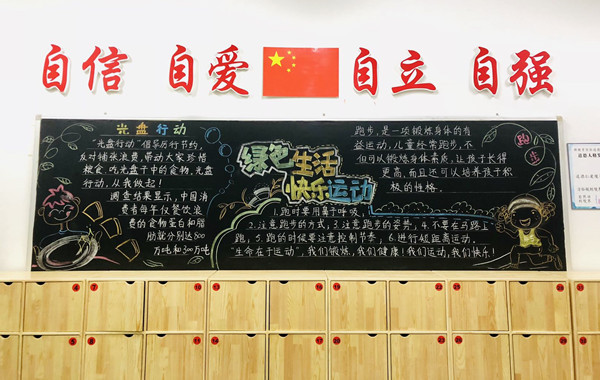 自信 自爱 自立 自强
光盘行动
“光盘行动”倡导厉行节约,
反对铺张浪费,带动大家珍惜
粮食,吃光盘子中的食物,光盘
行动,从我做起!
调查结果显示,中国消
费者每年仅餐饮浪
费的食物蛋白和脂
肪就分别达800
万吨和300万吨
绿色生活
快乐运动
跑步,是一项锻炼身体的有
益运动,儿童经常跑步,不
但可以锻炼身体素质,让孩子长得
更高,而且还可以培养孩子积
极的性格.
跑步
1.跑时要用鼻子呼吸,
2.注意跑步的方式,3.注意跑步的姿势,4.不要在马路上
跑,5.跑的时候要注意控制节奏,6.进行短距离运动,
“生命在于运动”,我们锻炼,我们健康!我们运动,我们快乐!